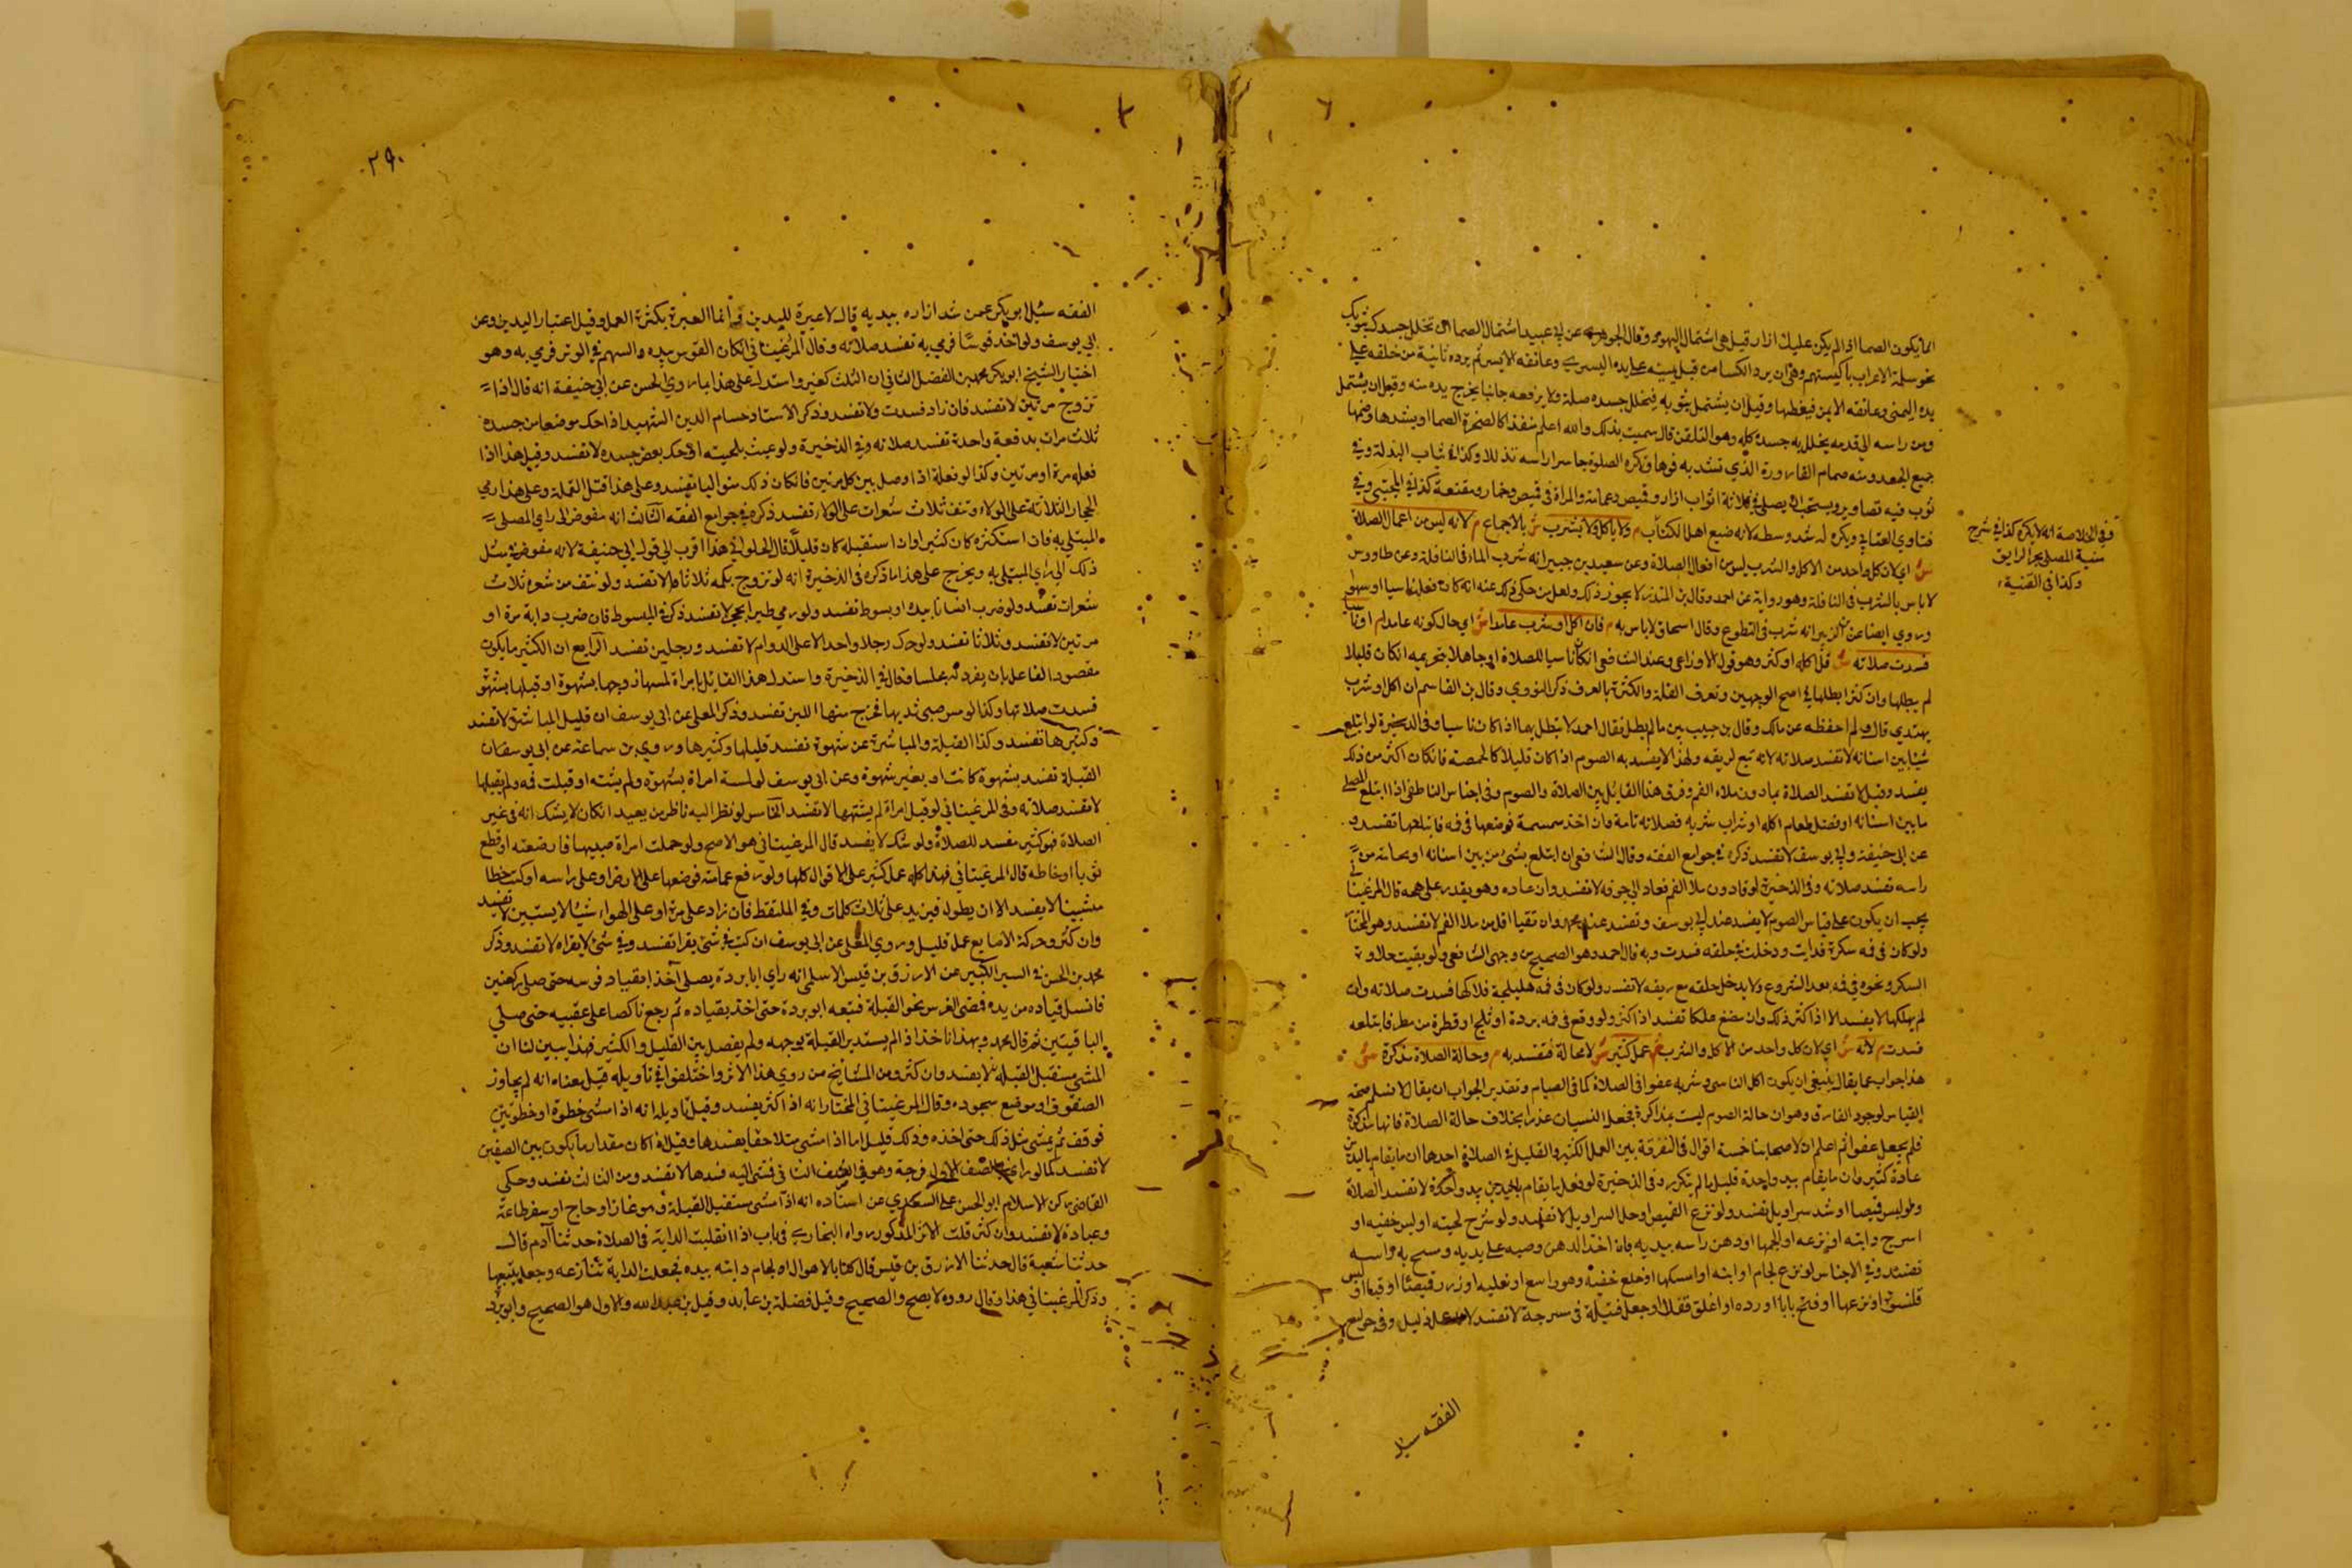 انما يكون الصما اذا لم يكن عليك ازار قيل هي اشتمال اليهود وقال الجوهري عن ابي عبيد اشتمال الصما ان تخلل جسدك بثوبك
نحو شملة الاعراب باكسيتهم وهو ان يرد الكسا من قبل يمينه على يده اليسرى وعاتقه الايسر ثم يرده ثانية من خلفه على
يده اليمنى وعاتقه الايمن فيغطيهما وقيل ان يشتمل بثوبه فيخلل جسده كله ولا يرفعه جانبا يخرج يده منه وقيل ان يشتمل
ومن راسه الى قدمه يخلل به جسده كله وهو التلفق قال سميت بذلك والله اعلم منفذا كالصخرة الصما
جميع الجسد ومنه صمام القارورة الذي تسد به فوها وتكره الصلوة حاسرا راسه تذللا وكذا في ثياب البذلة وفي
ثوب فيه تصاوير ويستحب ان يصلي في ثلاثة اثواب ازار وقميص وعمامة والمراة في قميص وخمار ومقنعة كذا في المجتبى وفي
فتاوي العتابي ويكره له شد وسطه لانه صنيع اهل الكتاب م ولا ياكل ولا يشرب ش بالاجماع م لانه ليس من اعمال الصلاة
ش اي لان كل واحد من الاكل والشرب ليس من افعال الصلاة وعن سعيد بن جبير انه شرب الماء في النافلة وعن طاووس
لا باس بالشرب في النافلة وهو رواية عن احمد وقال بن المنذر لا يجوز ذلك ولعل من حكى ذلك عنه انه كان فعله ناسيا او سهوا
وروي ايضا عن بن الزبير انه شرب في التطوع وقال اسحاق لا باس به م فان اكل او شرب عامدا ش اي حال كونه عامدا م او ناسيا
فسدت صلاته ش قل اكله او كثر وهو قول الاوزاعي وعند الشافعي ان كان ناسيا للصلاة او جاهلا بتحريمه ان كان قليلا
لم يبطلها وان كثر ابطلها في اصح الوجهين وتعرف القلة والكثرة بالعرف ذكره النووي وقال بن القاسم ان اكل او شرب
يبتدي قال ولم احفظه عن مالك وقال بن حبيب بين ما لم يطل فقال احمد لا تبطل بهما اذا كان ناسيا وفي الذخيرة لو ابتلع
شيئا بين اسنانه لا تفسد صلاته لانه تبع لريقه ولهذا لا يفسد به الصوم اذا كان قليلا كالحمصة فان كان اكثر من ذلك
يفسد وقيل لا تفسد الصلاة بما دون ملاء الفم وفرق هذا القائل بين الصلاة والصوم وفي اجناس الناطفي اذا ابتلع المصلي
ما بين اسنانه او فضل طعام اكله او شراب شربه فصلاته تامة وان اخذ سمسمة فوضعها في فه فابتلعها تفسد و
عن ابي حنيفة وابي يوسف لا تفسد ذكره في جوامع الفقه وقال الشافعي ان ابتلع شئ من بين اسنانه او نخامة من
راسه تفسد صلاته وفي الذخيرة لو قاء دون ملا الفم فعاد الى جوفه لا تفسد وان عاده وهو يقدر على مجه قال المرغينا
يجب ان يكون على قياس الصوم لا يفسد عند ابي يوسف وتفسد عند محمد وان تقيا اقل من ملا الفم لا تفسد وهو المختار
ولو كان في فمه سكرة فذابت ودخلت في حلقه فسدت وبه قال احمد وهو الصحيح من وجهي الشافعي ولو بقيت حلاوة
السكر ونحوه في فيه بعد الشروع ولا يدخل حلقه مع ريقه لا تفسد ولو كان في فمه هليلجة فلاكها فسدت صلاته وان
لم يهلكها لا يفسد الا اذا كثر ذلك وان مضغ علكا تفسد اذا كثر ولو وقع في فمه بردة او ثلج او قطرة من مطر فابتلعه
فسدت م لانه ش اي لان كل واحد من الاكل والشرب م عمل كثير ش لا محالة فتفسد به م وحالة الصلاة مذكرة ش
هذا جواب عما يقال ينبغي ان يكون اكل الناسي وشربه عفوا في الصلاة كما في الصيام وتقدير الجواب ان يقال لا نسلم صحة
القياس لوجود الفارق وهو ان حالة الصوم ليست بمذاكرة فجعل النسيان عذرا بخلاف حالة الصلاة فانها مذكرة
فلم يجعل عفوا ثم اعلم ان لاصحابنا خمسة اقوال في التفرقة بين العمل الكثير والقليل في الصلاة احدها ان ما يقام باليدين
عادة كثير وان ما يقام بيد واحدة قليل ما لم يتكرر وفي الذخيرة لو فعل ما يقام باليدين بيد واحدة لا تفسد الصلاة
ولو لبس قميصا او شد سراويل تفسد ولو نزع القميص او حل السراويل لا تفسد ولو سرح لحيته او لبس خفيه او
اسرج دابته او نزعه او الجمها او دهن راسه بيديه بان اخذ الدهن وصبه على يديه ومسح به راسه
تفسد وفي الاجناس لو نزع لجام او دابته او امسكها او خلع خفيه وهو واسع او نعليه او زر قميصا او قبا او لبس
قلنسوة او نزعها او فتح بابا او رده او اغلق قفلا او جعل فتيلة في مسرجة لا تفسد لانه عمل قليل وفي جوامع
وفي الخلاصة انه لا يكره كذا في شرح
منية المصلي بحر الرايق
وكذا في القنية
الفقه سئل
٢٩٠
الفقه سئل ابو بكر عمن شد ازاره بيديه قال لا عبرة لليدين وانما العبرة بكثرة العمل وقيل اعتبار اليدين وعن
ابي يوسف ولو اخذ قوسا فرمى به تفسد صلاته وقال المرغيناني ان كان القوس بيده والسهم في الوتر فرمى به وهو
اختيار الشيخ ابو بكر محمد بن الفضل الثاني ان الثلث كثير واستدل على هذا بما روي الحسن عن ابي حنيفة انه قال اذا
تروح مرتين لا تفسد فان زاد فسدت ولا تفسد وذكر الاستاد حسام الدين الشهيد اذا حك موضعا من جسده
ثلاث مرات بدفعة واحدة تفسد صلاته وفي الذخيرة ولو عبث بلحيته او حك بعض جسده لا تفسد وقيل هذا اذا
فعله مرة او مرتين وكذا لو فعله اذا وصل بين كل مرتين فان كان ذلك متواليا تفسد وعلى هذا قتل القملة وعلى هذا رمي
الجمار الثلاثة على الولاء ونتف ثلاث شعرات على الولاء تفسد ذكره في جوامع الفقه الثالث انه مفوض الى راي المصلي
المبتلي به فان استكثره كان كثيرا وان استقبله كان قليلا قال الحلواني هذا اقرب الى قول ابي حنيفة لانه مفوض في مثل
ذلك الى راي المبتلي به ويخرج على هذا ما ذكره في الذخيرة انه لو تروح بكمه ثلاثا لا تفسد ولو نتف من شعره ثلاث
شعرات تفسد ولو ضرب انسانا بيده او بسوط تفسد ولو رمى طيرا بحجر لا تفسد ذكره في المبسوط فان ضرب دابة مرة او
مرتين لا تفسد وثلاثا تفسد ولو حرك رجلا واحدا لا على الدوام لا تفسد ورجلين تفسد الرابع ان الكثير ما يكون
مقصودا لفاعله بان يفرد له مجلسا فقال في الذخيرة واستدل هذا القائل بامراة لمسها زوجها بشهوة او قبلها بشهوة
فسدت صلاتها وكذا لو مص صبي ثديها فخرج منها اللبن تفسد وذكر المعلى عن ابي يوسف ان قليل المباشرة لا تفسد
وكثيرها تفسد وكذا القبلة والمباشرة عن شهوة تفسد قليلها وكثيرها وروي بن سماعة عن ابي يوسف ان
القبلة تفسد بشهوة كانت او بغير شهوة وعن ابي يوسف لو لمسته امراة بشهوة ولم يشته او قبلت فه ولم يقبلها
لا تفسد صلاته وفي المرغيناني لو قبل امراة لم يشتهها لا تفسد الخامس لو نظر اليه ناظر من بعيد ان كان لا يشك انه في غير
الصلاة فهو كثير مفسد للصلاة ولو شك لا يفسد قال المرغيناني هو الاصح ولو حملت امراة صبيها فارضعته او قطع
ثوبا او خاطه قال المرغيناني فهذا كله عمل كثير على الاقوال كلها ولو رفع عمامته فوضعها على الارض او على راسه او كتب خطا
مستبينا لا يفسد الا ان يطول فيزيد على ثلاث كلمات وفي الملتقط فان زاد على مرة او على الهواء شيئا لا يستبين لا تفسد
وان كثر وحركة الاصابع عمل قليل وروي المعلى عن ابي يوسف ان كتب في شئ يقرا تفسد وفي شئ لا يقراه لا تفسد وذكر
محمد بن الحسن في السير الكبير عن الازرق بن قيس الاسلمي انه راي ابا بردة يصلي آخذا بقياد فرسه حتى صلى ركعتين
فانسل قياده من يده فمضى الفرس نحو القبلة فتبعه ابو بردة حتى اخذ بقياده ثم رجع ناكصا على عقبيه حتى صلى
الباقيتين ثم قال محمد وبهذا ناخذ اذا لم يستدبر القبلة بوجهه ولم يفصل بين القليل والكثير فهذا يبين لنا ان
المشي مستقبل القبلة لا يفسد وان كثر ومن المشايخ من روى هذا الاثر واختلفوا في تاويله قيل معناه انه لم يجاوز
الصفوف او موضع سجوده وقال المرغيناني المختار انه اذا كثر يفسد وقيل تاويله انه اذا مشى خطوة او خطوتين
فوقف ثم يمشي مثل ذلك حتى اخذه وذلك قليل اما اذا مشى متلاحقا يفسدها وقيل اذا كان مقدار ما يكون بين الصفين
لا تفسد كما لو راي في الصف الاول فرجة وهو في الصف الثاني فمشى اليه فسدها لا تفسد ومن الثالث تفسد وحكى
القاضي ركن الاسلام ابو الحسن علي السغدي عن استاده انه اذا مشى مستقبل القبلة وهو غاز او حاج او سفر طاعة
وعبادة لا تفسد وان كثر قلت الاثر المذكور رواه البخاري في باب اذا انفلتت الدابة في الصلاة حدثنا آدم قال
حدثنا شعبة قال حدثنا الازرق بن قيس قال كنا بالاهواز الى لجام دابته بيده فجعلت الدابة تنازعه وجعل يتبعها
وذكر المرغيناني هذا وقال رووه لا يصح والصحيح وقيل فضلة بن عايد وقيل بن عبد الله والاول هو الصحيح وابو برد